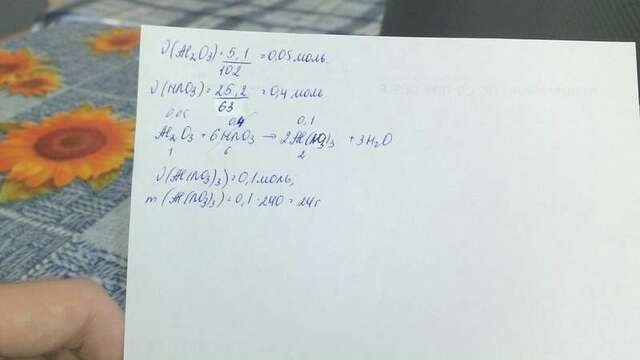 ν(Al₂O₃) = 5,1/102 = 0,05 моль
ν(HNO₃) = 25,2/63 = 0,4 моль
0,05 0,4 0,1
Al₂O₃ + 6HNO₃ → 2Al(NO₃)₃ + 3H₂O
1 6 2
ν(Al(NO₃)₃) = 0,1 моль,
m(Al(NO₃)₃) = 0,1 · 240 = 24г